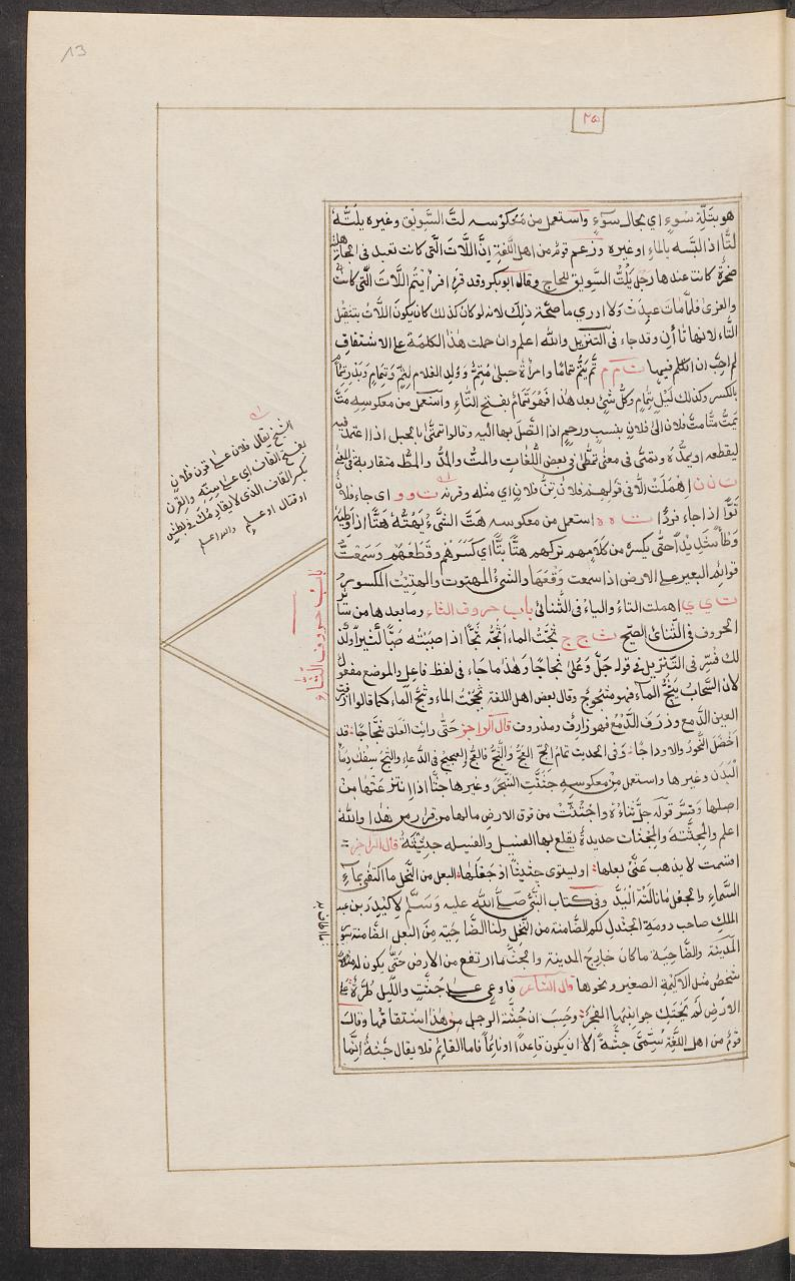 13
٢٥
هو بتلّة سوءٍ اي بحال سوءٍ واستعمل من معكوسه لتَّ السَّويق وغيره يلُتُّه
لتًّا اذا البسه بالماءِ او غيره وزعم قومٌ من اهل اللّغة انَّ اللَّاتَ الّتي كانت تعبد في الجاهلية
صخرةٌ كانت عندها رجل يلُتُّ السَّويق للحاج وقال ابوبكر وقد قرئ افرأيتم اللَّاتَ الّتي كانت
والعزى فلمّا مات عبدت ولا ادري ما صحّة ذلك لانه لو كان كذلك كان يكون اللَّاتُّ بتثقيل
التّاء لانها تاأن وقد جاء في التنزيل والله اعلم وان حملت هذه الكلمة على الاشتقاق
لم احبّ ان اتكلم فيها ت م م تمَّ يتمُّ تمامًا وامرأة حبلى مُتِمٌّ ووُلد الغلام لِتِمٍّ وتِمامٍ وبدرِ تِمامٍ
بالكسر وكذلك ليل تِمامٍ وكلُّ شيءٍ بعد هذا فهو تَمامٌ بفتح التّاءِ واستعمل من معكوسه متَّ
يمتُّ متًّا متَّ فلان الى فلانٍ بنسبٍ ورحمٍ اذا اتّصل بها اليه وقالوا تمتّى بالحبل اذا اعتمد فيه
ليقطعه او يمدَّه وتمتّى في معنى تمطّى في بعض اللّغات والمتُّ والمدُّ والمطّ متقاربة في المعنى
ت ن ن اهملت الّا في قولهم فلان تِنُّ فلانٍ اي مثله وقرنه ت و و اي جاء فلان
توًّا اذا جاء فردًا ت ه ه استعمل من معكوسه هتَّ الشيءَ يهُتُّه هتًّا اذا وطئه
وطأً شديدًا حتّى يكسره من كلامهم تركهم هتًّا بتًّا اي كسرهم وقطعهم وسمعت
قوائم البعير على الارض اذا سمعت وقعها والشيء المهتوت والهتيت المكسور
ت ي ي اهملت التاءُ والياءُ في الثنائي باب حروف الثاء وما بعدها من سائر
الحروف في الثنائي الصحيح ث ج ج ثججتُ الماء اثُجُّه ثجًّا اذا صببتُه صبًّا كثيرًا وكذ
لك فُسّر في التنزيل في قوله جلَّ وعلى ثجاجًا وهذا ما جاء في لفظ فاعل والموضع مفعول
لان السَّحاب يثجّ الماء فهو مثجوج وقال بعض اهل اللغة ثججتُ الماء وثجَّ الماء كما قالوا ذرفت
العين الدَّمع وذرف الدّمع فهو ذارف ومذروف قال الراجز حتّى رأيت العلق ثجّاجًا قد
اخضل النحور والاوداجا وفي الحديث تمام الحجّ العجّ والثّجّ فالعجّ العجيج في الدّعاءِ والثّجّ سفك دماء
البدن وغيرها واستعمل من معكوسه جثثت الشجر وغيرها جثًّا اذا انتزعتها من
اصلها وفسّر قوله جلّ ثناؤه واجتثّت من فوق الارض مالها من قرار من هذا والله
اعلم والمجثّة والمجثاث حديدة يقلع بها الفسيل والفسيله جثيثة قال الراجز
اقسمت لا يذهب عنّي بعلها او يستوي جثيثها وجعلها البعل من النّخل ما اكتفى بماءِ
السّماءِ والجعل ما نالته اليد وفي كتاب النّبي صلّى الله عليه وسلم لاكيدر بن عبد
الملك صاحب دومة الجندل لكم الضّامنة من النّخل ولنا الضّاحية من البعل الضّامنة
المدينة والضّاحية ما كان خارج المدينة والجثّ ما ارتفع من الارض حتّى يكون له
شخص مثل الاكيمة الصغيرة ونحوها قال الشاعر فاوفى على جثٍّ والليل طرّةٌ على
الارض لم يهتك جوانبها الفجر وحسب ان جُثّة الرجل من هذا اشتقاقها وقال
قوم من اهل اللغة لا تسمّى جثّة الا ان يكون قاعدًا او نائمًا فاما القائم فلا يقال جثة انّما
الشيخ يقال فلان على قرن فلانٍ
بفتح القاف اي على سنّه والقرن
بكسر القاف الذي لا يقاومك في بطش
او قتال او علم والله اعلم
باب حروف الثّاء